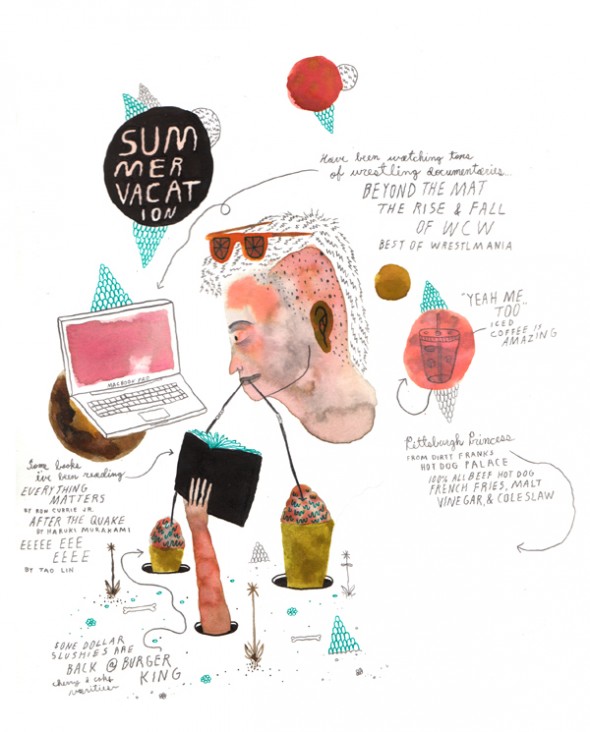 SUM
MER
VACAT
ION
Have been watching tons
of wrestling documentaries
BEYOND THE MAT
THE RISE & FALL
OF WCW
BEST OF WRESTLMANIA
"YEAH ME
TOO"
ICED
COFFEE IS
AMAZING
MACBOOK PRO
Pittsburgh Princess
FROM DIRTY FRANKS
HOT DOG PALACE
100% ALL BEEF HOT DOG
FRENCH FRIES, MALT
VINEGAR, & COLESLAW
Some books
i've been reading
EVERYTHING
MATTERS
BY RON CURRIE JR.
AFTER THE QUAKE
BY HARUKI MURAKAMI
EEEEE EEE
EEEE
BY TAO LIN
$ONE DOLLAR
SLUSHIES ARE
BACK @ BURGER
KING
cherry & coke
varieties